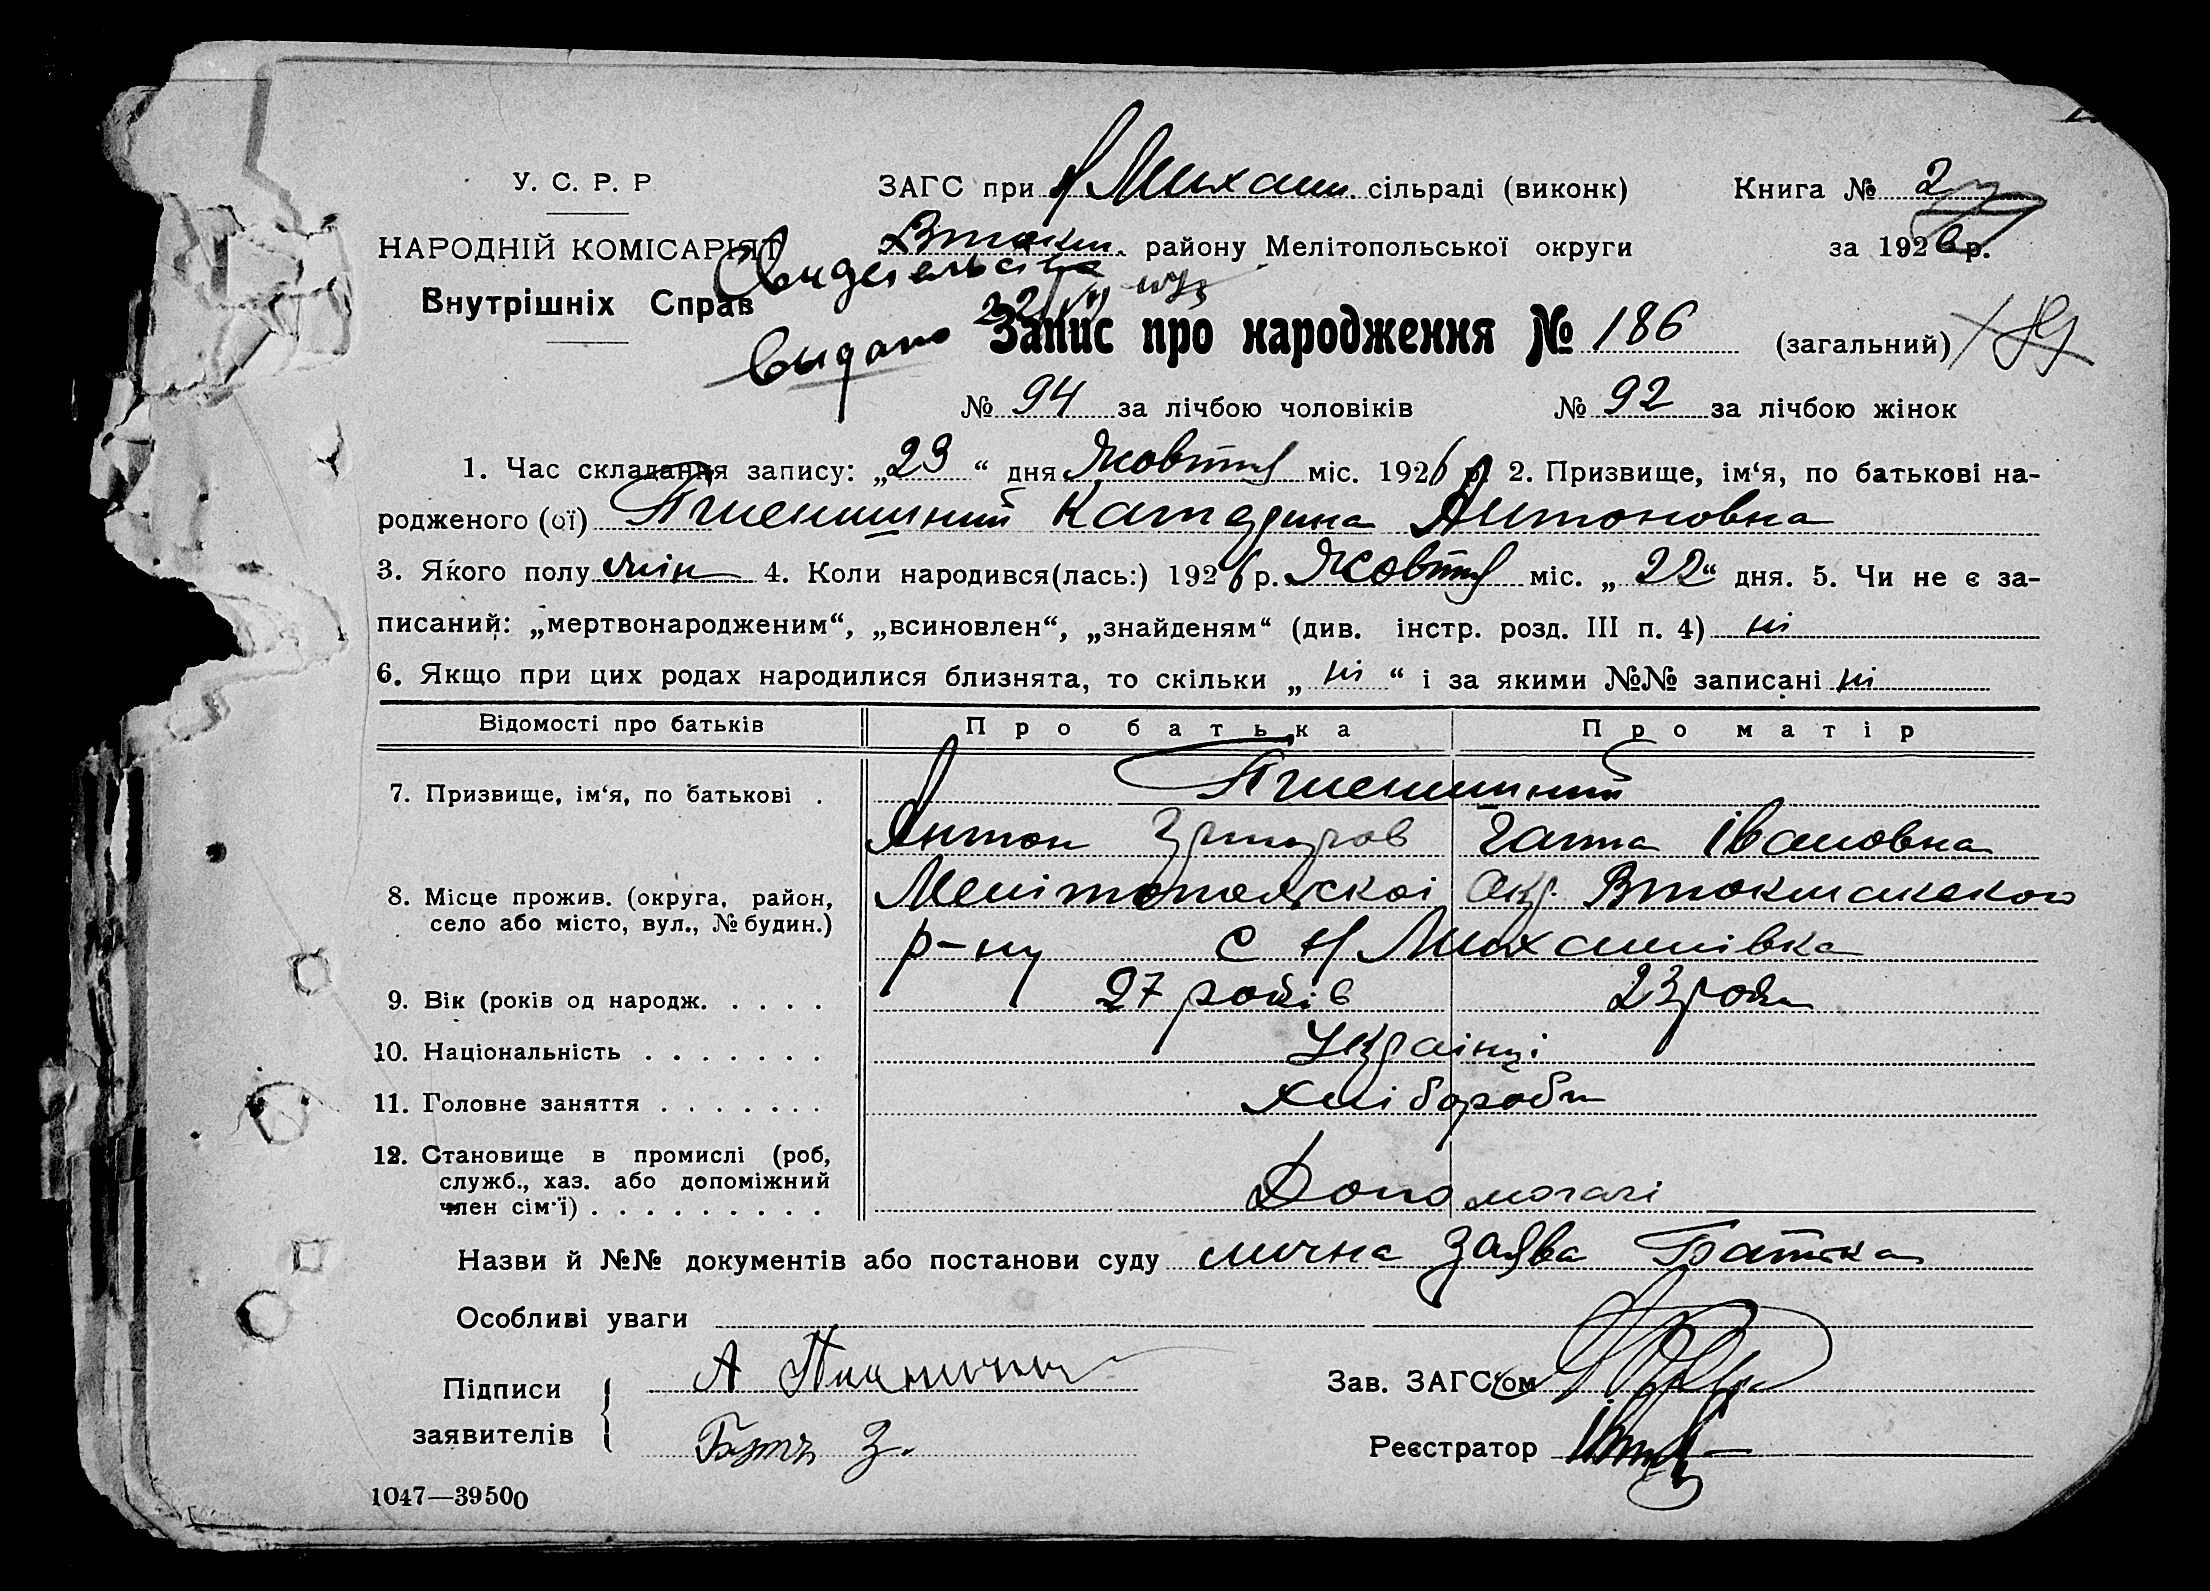 У. С. Р. Р
НАРОДНІЙ КОМІСАРІЯТ
Внутрішніх Справ
ЗАГС при Н Михайл. сільраді (виконк)
Втокм. району Мелітопольської округи
Книга № 2
за 1926 р.
Свидетельство
видано 22/VI
Запис про народження № 186 (загальний)
№ 94 за лічбою чоловіків № 92 за лічбою жінок
1. Час складання запису: „23“ дня Жовтня міс. 1926 р. 2. Призвище, ім‘я, по батькові на-
родженого (ої) Пшеничний Катерина Антоновна
3. Якого полу жін 4. Коли народився(лась:) 1926 р. Жовтня міс. „22“ дня. 5. Чи не є за-
писаний: „мертвонародженим“, „всиновлен“, „знайденям“ (див. інстр. розд. III п. 4) ні
6. Якщо при цих родах народилися близнята, то скільки „ні“ і за якими №№ записані ні
Відомості про батьків Про батька Про матір
7. Призвище, ім‘я, по батькові . Пшеничний
Антон Ганна Івановна
8. Місце прожив. (округа, район, село або місто, вул., № будин.) Мелітопольскоі окр. Втокмакского
р-ну с Н Михайлівка
9. Вік (років од народж. . . . . 27 років 23 роки
10. Національність . . . . . . . Українці
11. Головне заняття . . . . . . . Хлібороби
12. Становище в промислі (роб,
служб., хаз. або допоміжний
член сім‘ї) . . . . . . . . . Допомогачі
Назви й №№ документів або постанови суду лична заява Батька
Особливі уваги
Підписи
заявителів
А
Зав. ЗАГС‘ом
Реєстратор
1047—39500